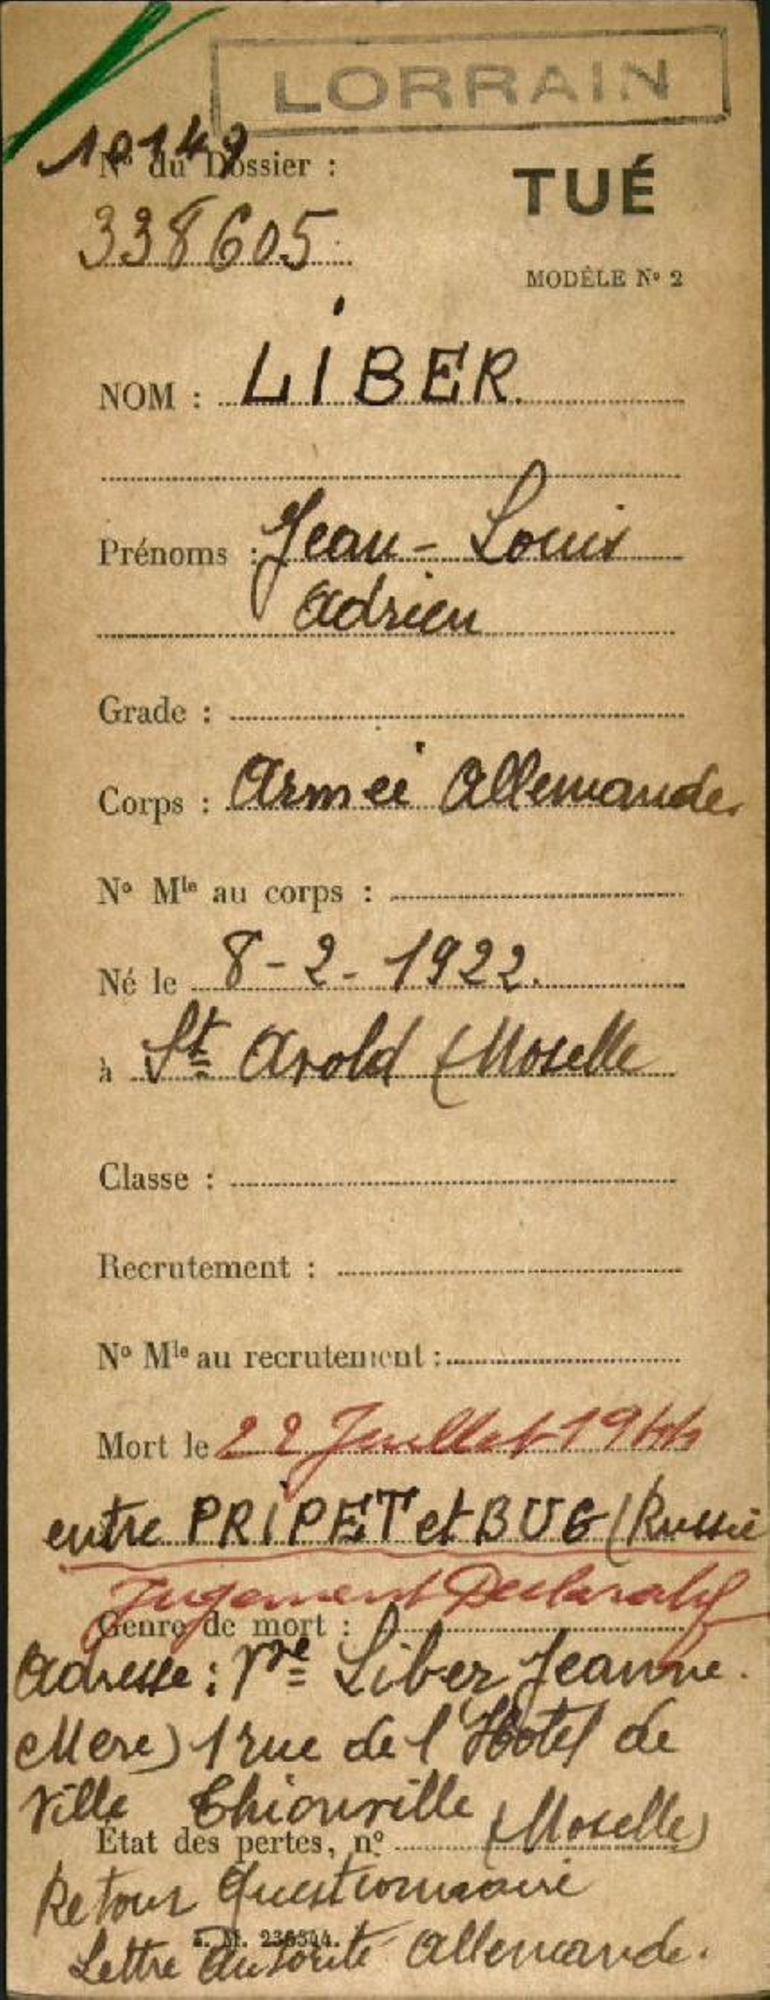 LORRAIN
10149
N° du Dossier :
338605
TUÉ
MODÈLE N° 2
NOM : LIBER
Prénoms : Jean-Louis
Adrien
Grade :
Corps : Armée Allemande.
N° Mle au corps :
Né le 8-2-1922.
à St Avold (Moselle
Classe :
Recrutement :
N° Mle au recrutement :
Mort le 22 Juillet 1944
entre PRIPET et BUG (Russie
Jugement Déclaratif
Genre de mort :
Adresse : Vve Liber Jeanne.
Mère) 1 rue de l'Hotel de
Ville Thionville
(Moselle)
État des pertes, n°
Retour Questionnaire
236544.
Lettre Autorité Allemande.